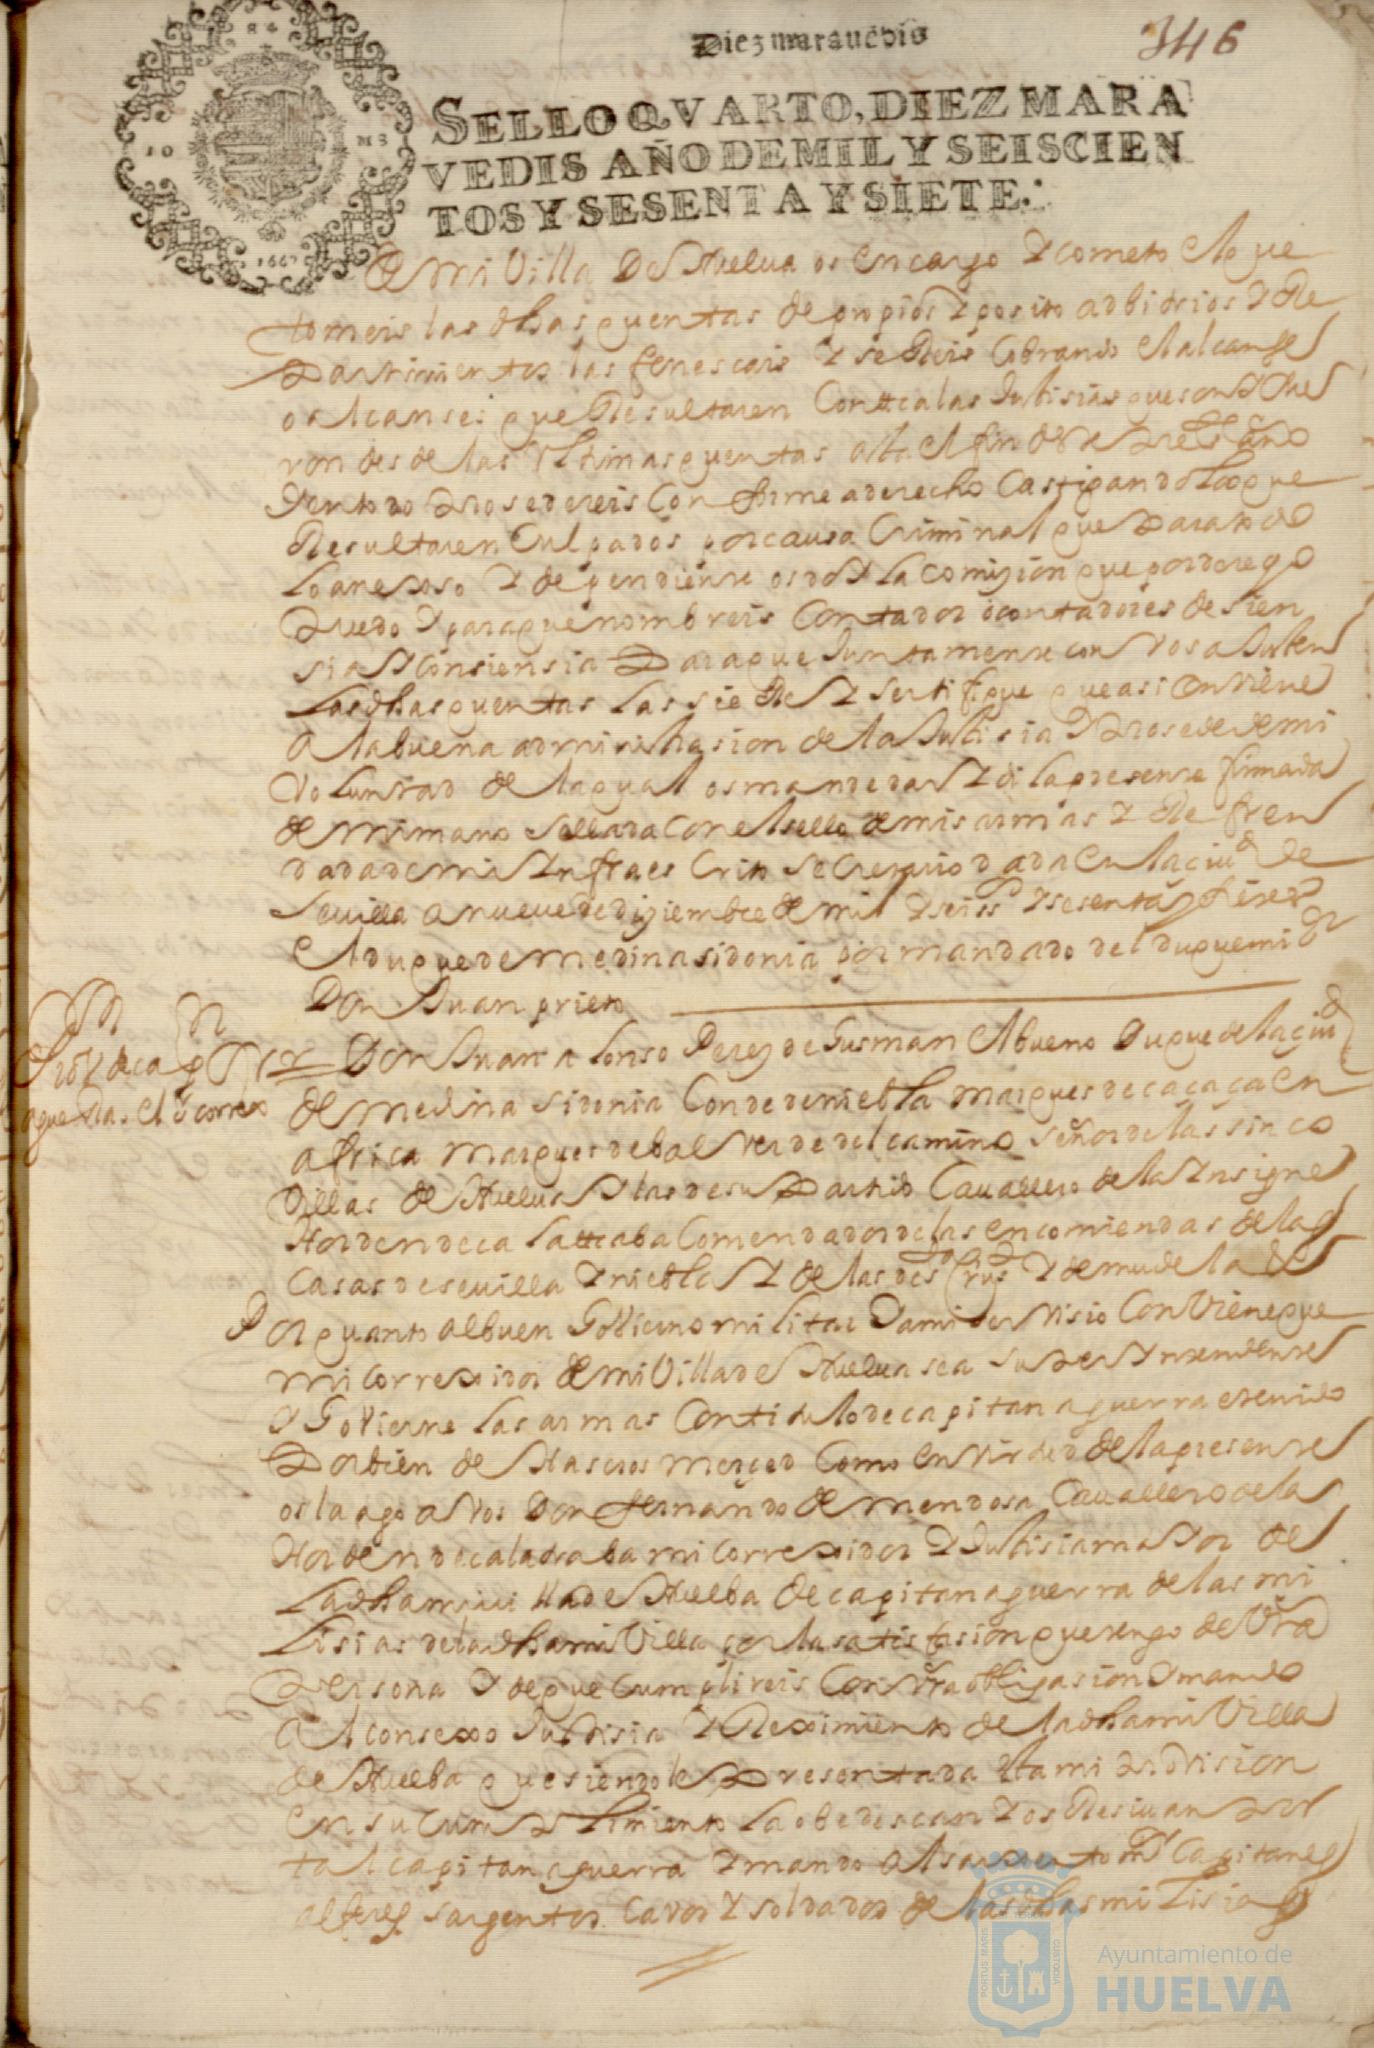 Diez marauedis
346
SELLO QVARTO, DIEZ MARA
VEDIS AÑO DE MIL Y SEISCIEN
TOS Y SESENTA Y SIETE.
1667
de mi Villa De Huelua os encargo Y cometo el que
tomeis las dhas quentas de propios Y posito adbitrios Y Re
Partimientos las fenescais Y seReis Cobrando el alcanse
o alcanses que Resultaren Conttra las Justisias que
ron desde las Vltimas quentas asta el fin de este presente año
Y en todo Prosedereis Conforme a derecho Castigando los que
Resultaren Culpados por causa Criminal que Para todo
lo anexoso Y dependiente os doY la comision que por derecho
Puedo Y para que nombreis Contador o contadores de sien
sia Y Consiensia Para que Juntamente con Vos ajusten
las dhas quentas las sierre Y sertifique que asi conviene
a la buena administrasion de la Justisia Y Prosede de mi
Voluntad de la qual os mande dar Y di la presente firmada
de mi mano Sellada Con el sello de mis armas Y Refren
dada de mi Ynfraescrito secretario dada en la ciud de
Seuilla a nueue de diziembre de mil Y seiss Y sesenta y siete
El duque de medina sidonia por mandado del duque mi sr
Don Juan prieto
Titº de capn
a guerra el Sr correxor
Don Juan alonso Perez de Gusman el bueno Duque de la ciud
de Medina Sidonia Conde de niebla Marques de caçaça en
africa Marques de balverde del camino Señor de las sinco
Villas de Huelua Y las de su Partido Cauallero de la Ynsigne
Horden de calattraba Comendador de las encomiendas de las
Casas de seuilla Y niebla Y de las de Y de mudela &
Por quanto al buen Govierno militar Y a mi servisio Conviene que
mi Correxidor de mi Villa de Huelua sea Superyntendente
Y Govierne las armas Con titulo de capitan a guerra e tenido
Por bien de Haseros merced Como en Virtud de la presente
os la ago a Vos Don fernando de mendosa Cauallero de la
Horden de calatraba mi correxidor Y Justisia maYor de
la dha mi villa de Huelba de capitan a guerra de las mi
lisias de la dha mi Villa por la satisfasion que tengo de Vra
Persona Y de que Cumplireis Con Vra obligasion Y mando
al Consexo Justisia Y Reximiento de la dha mi Villa
de Huelba que siendole Presentada esta mi Provision
En su Cumplimiento la obedescan Y os Resivan Por
tal capitan a guerra Y mando al sarxento mr Capitanes
alferes sargentos Cavos Y soldados de las dhas milisias
PORTUS MARIS
CUSTODIA
Ayuntamiento de
HUELVA